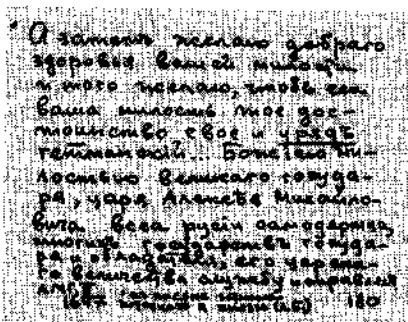 А затемъ желаю добраго
здоровья вашей милости
и того желаю, чтобъ
ваша милость мое дос-
тоинство свое и урядъ
гетманской... Божiею ми-
лостью великаго госуда-
ря, царя Алексѣя Михайло-
вича всеа русiи самодержца,
многихъ государствъ госуда-
ря и обладателя, его царска-
го величества службу
180